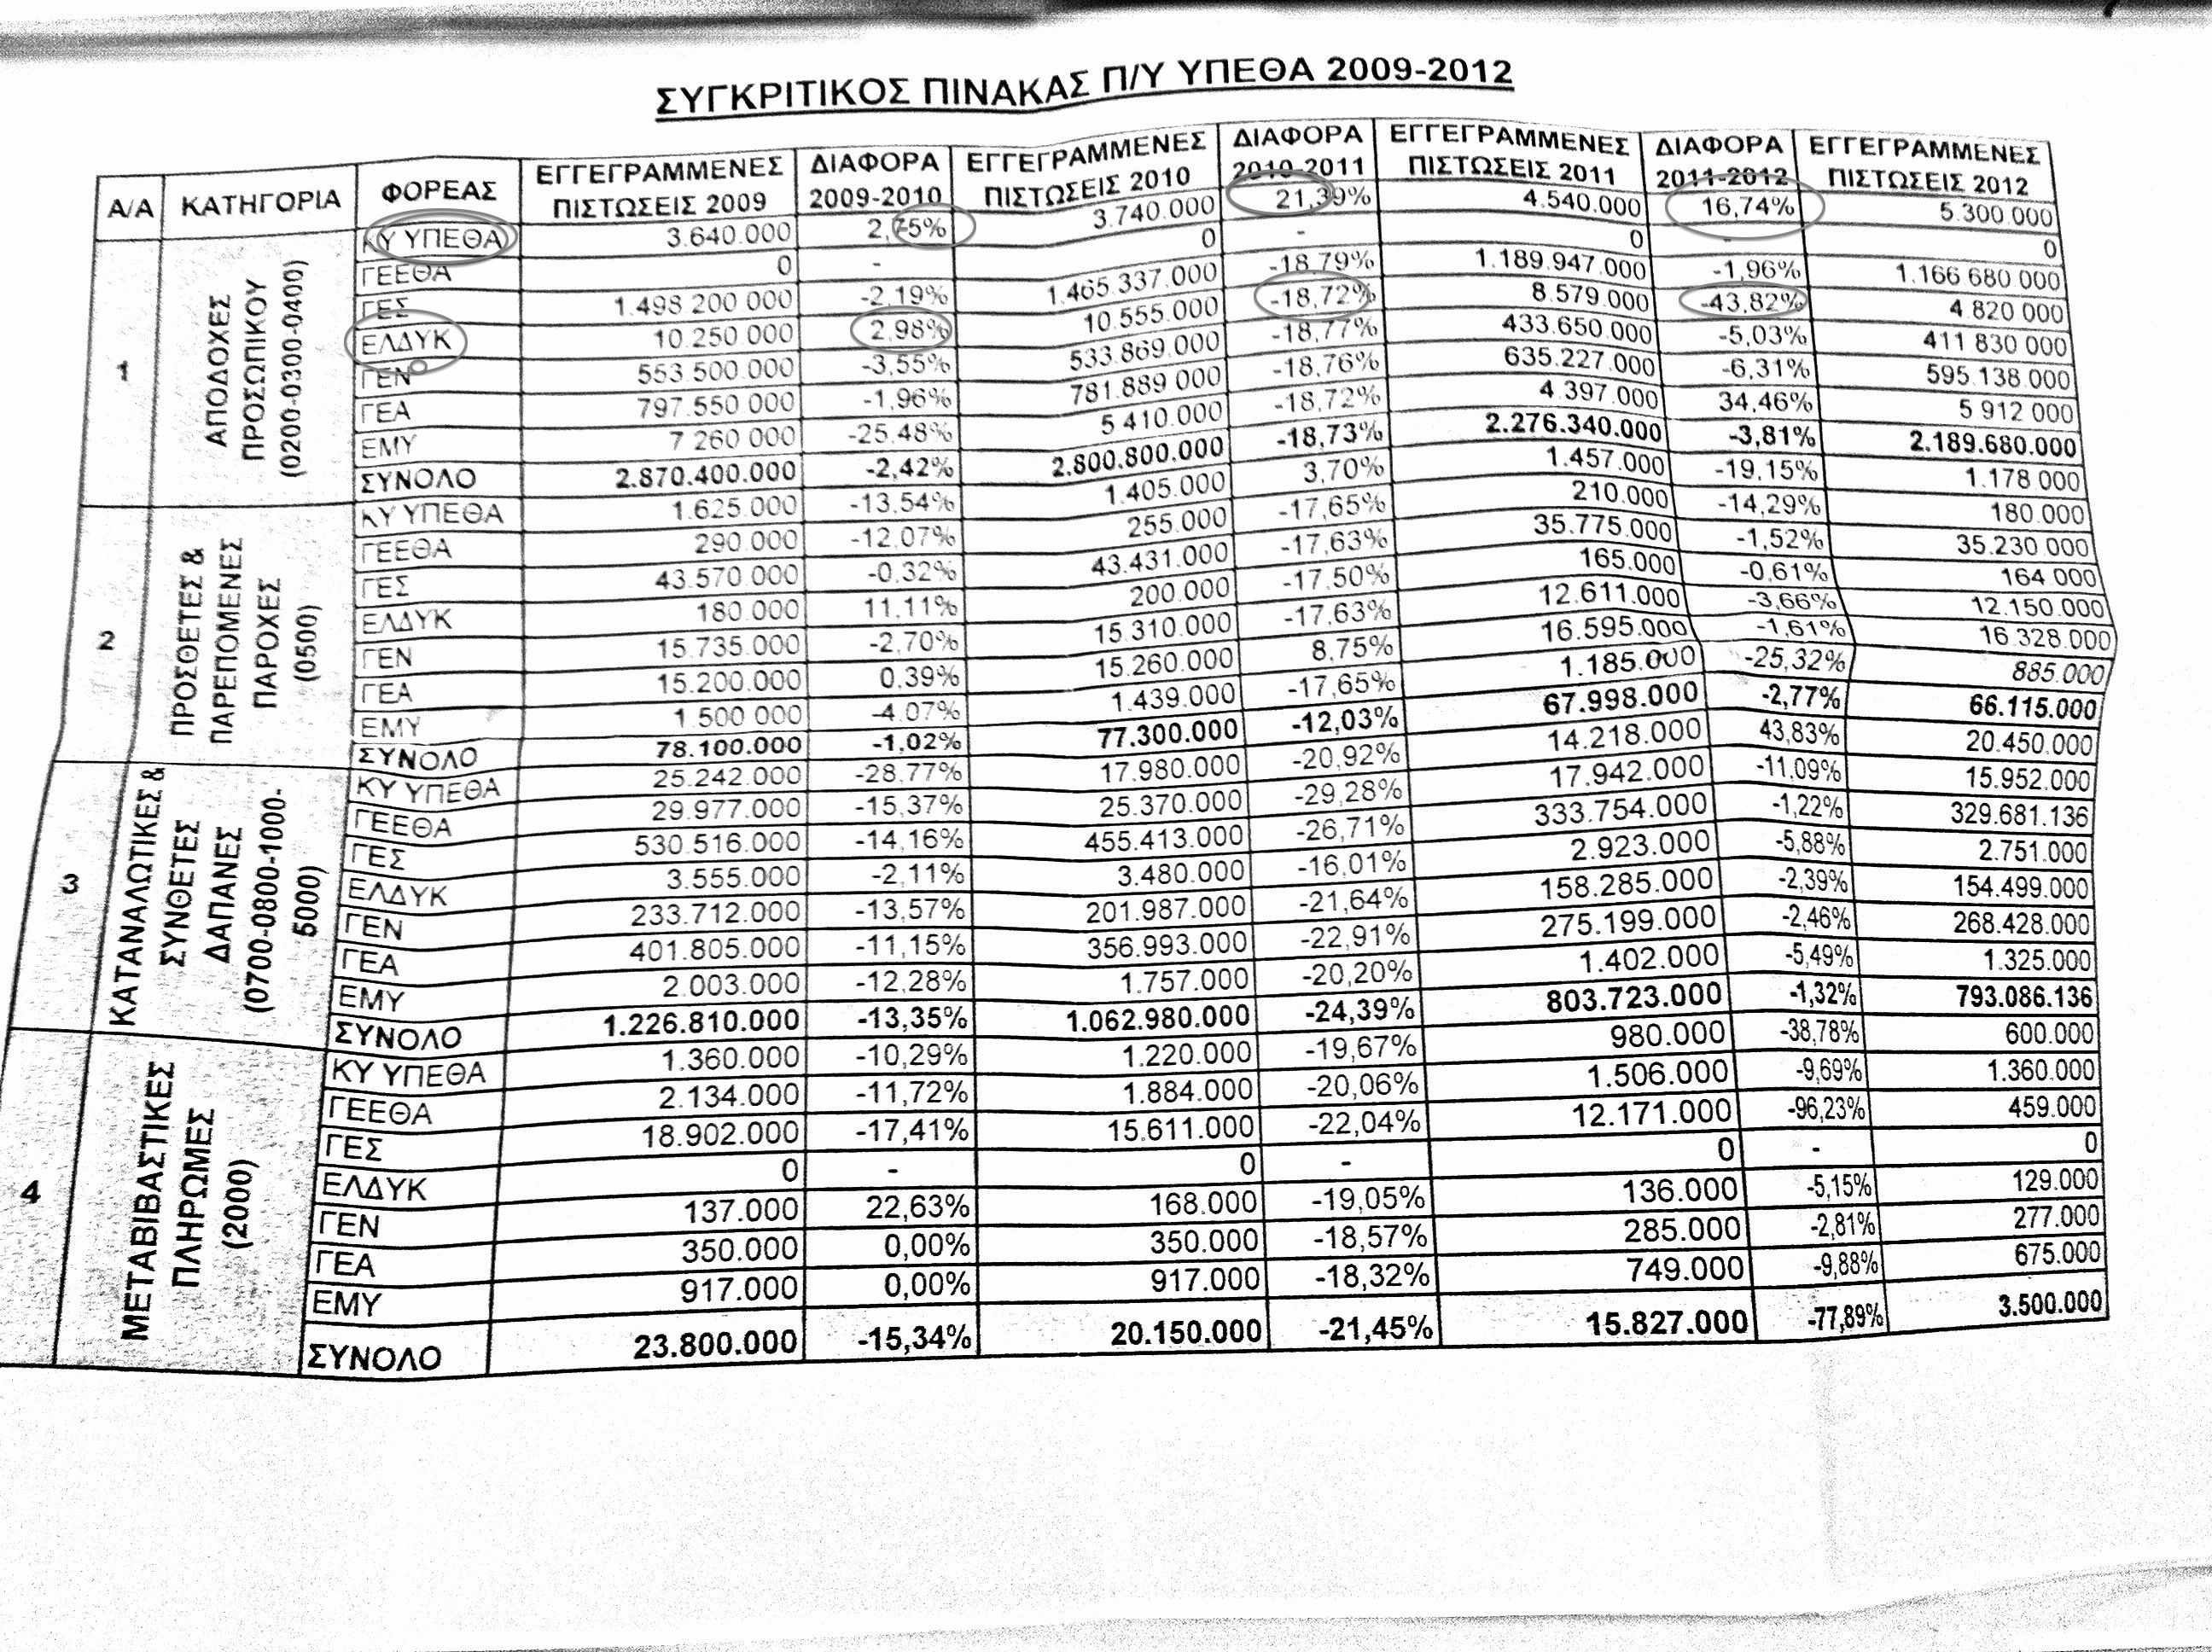 ΣΥΓΚΡΙΤΙΚΟΣ ΠΙΝΑΚΑΣ Π/Υ ΥΠΕΘΑ 2009-2012
Α/Α ΚΑΤΗΓΟΡΙΑ ΦΟΡΕΑΣ ΕΓΓΕΓΡΑΜΜΕΝΕΣ ΠΙΣΤΩΣΕΙΣ 2009 ΔΙΑΦΟΡΑ 2009-2010 ΕΓΓΕΓΡΑΜΜΕΝΕΣ ΠΙΣΤΩΣΕΙΣ 2010 ΔΙΑΦΟΡΑ 2010-2011 ΕΓΓΕΓΡΑΜΜΕΝΕΣ ΠΙΣΤΩΣΕΙΣ 2011 ΔΙΑΦΟΡΑ 2011-2012 ΕΓΓΕΓΡΑΜΜΕΝΕΣ ΠΙΣΤΩΣΕΙΣ 2012
1 ΑΠΟΔΟΧΕΣ ΠΡΟΣΩΠΙΚΟΥ (0200-0300-0400)
ΚΥ ΥΠΕΘΑ 3.640.000 2,75% 3.740.000 21,39% 4.540.000 16,74% 5.300.000
ΓΕΕΘΑ 0 - 0 - 0 - 0
ΓΕΣ 1.498.200.000 -2,19% 1.465.337.000 -18,79% 1.189.947.000 -1,96% 1.166.680.000
ΕΛΔΥΚ 10.250.000 2,98% 10.555.000 -18,72% 8.579.000 -43,82% 4.820.000
ΓΕΝ 553.500.000 -3,55% 533.869.000 -18,77% 433.650.000 -5,03% 411.830.000
ΓΕΑ 797.550.000 -1,96% 781.889.000 -18,76% 635.227.000 -6,31% 595.138.000
ΕΜΥ 7.260.000 -25,48% 5.410.000 -18,72% 4.397.000 34,46% 5.912.000
ΣΥΝΟΛΟ 2.870.400.000 -2,42% 2.800.800.000 -18,73% 2.276.340.000 -3,81% 2.189.680.000
2 ΠΡΟΣΘΕΤΕΣ & ΠΑΡΕΠΟΜΕΝΕΣ ΠΑΡΟΧΕΣ (0500)
ΚΥ ΥΠΕΘΑ 1.625.000 -13,54% 1.405.000 3,70% 1.457.000 -19,15% 1.178.000
ΓΕΕΘΑ 290.000 -12,07% 255.000 -17,65% 210.000 -14,29% 180.000
ΓΕΣ 43.570.000 -0,32% 43.431.000 -17,63% 35.775.000 -1,52% 35.230.000
ΕΛΔΥΚ 180.000 11,11% 200.000 -17,50% 165.000 -0,61% 164.000
ΓΕΝ 15.735.000 -2,70% 15.310.000 -17,63% 12.611.000 -3,66% 12.150.000
ΓΕΑ 15.200.000 0,39% 15.260.000 8,75% 16.595.000 -1,61% 16.328.000
ΕΜΥ 1.500.000 -4,07% 1.439.000 -17,65% 1.185.000 -25,32% 885.000
ΣΥΝΟΛΟ 78.100.000 -1,02% 77.300.000 -12,03% 67.998.000 -2,77% 66.115.000
3 ΚΑΤΑΝΑΛΩΤΙΚΕΣ & ΣΥΝΘΕΤΕΣ ΔΑΠΑΝΕΣ (0700-0800-1000-5000)
ΚΥ ΥΠΕΘΑ 25.242.000 -28,77% 17.980.000 -20,92% 14.218.000 43,83% 20.450.000
ΓΕΕΘΑ 29.977.000 -15,37% 25.370.000 -29,28% 17.942.000 -11,09% 15.952.000
ΓΕΣ 530.516.000 -14,16% 455.413.000 -26,71% 333.754.000 -1,22% 329.681.136
ΕΛΔΥΚ 3.555.000 -2,11% 3.480.000 -16,01% 2.923.000 -5,88% 2.751.000
ΓΕΝ 233.712.000 -13,57% 201.987.000 -21,64% 158.285.000 -2,39% 154.499.000
ΓΕΑ 401.805.000 -11,15% 356.993.000 -22,91% 275.199.000 -2,46% 268.428.000
ΕΜΥ 2.003.000 -12,28% 1.757.000 -20,20% 1.402.000 -5,49% 1.325.000
ΣΥΝΟΛΟ 1.226.810.000 -13,35% 1.062.980.000 -24,39% 803.723.000 -1,32% 793.086.136
4 ΜΕΤΑΒΙΒΑΣΤΙΚΕΣ ΠΛΗΡΩΜΕΣ (2000)
ΚΥ ΥΠΕΘΑ 1.360.000 -10,29% 1.220.000 -19,67% 980.000 -38,78% 600.000
ΓΕΕΘΑ 2.134.000 -11,72% 1.884.000 -20,06% 1.506.000 -9,69% 1.360.000
ΓΕΣ 18.902.000 -17,41% 15.611.000 -22,04% 12.171.000 -96,23% 459.000
ΕΛΔΥΚ 0 - 0 - 0 - 0
ΓΕΝ 137.000 22,63% 168.000 -19,05% 136.000 -5,15% 129.000
ΓΕΑ 350.000 0,00% 350.000 -18,57% 285.000 -2,81% 277.000
ΕΜΥ 917.000 0,00% 917.000 -18,32% 749.000 -9,88% 675.000
ΣΥΝΟΛΟ 23.800.000 -15,34% 20.150.000 -21,45% 15.827.000 -77,89% 3.500.000